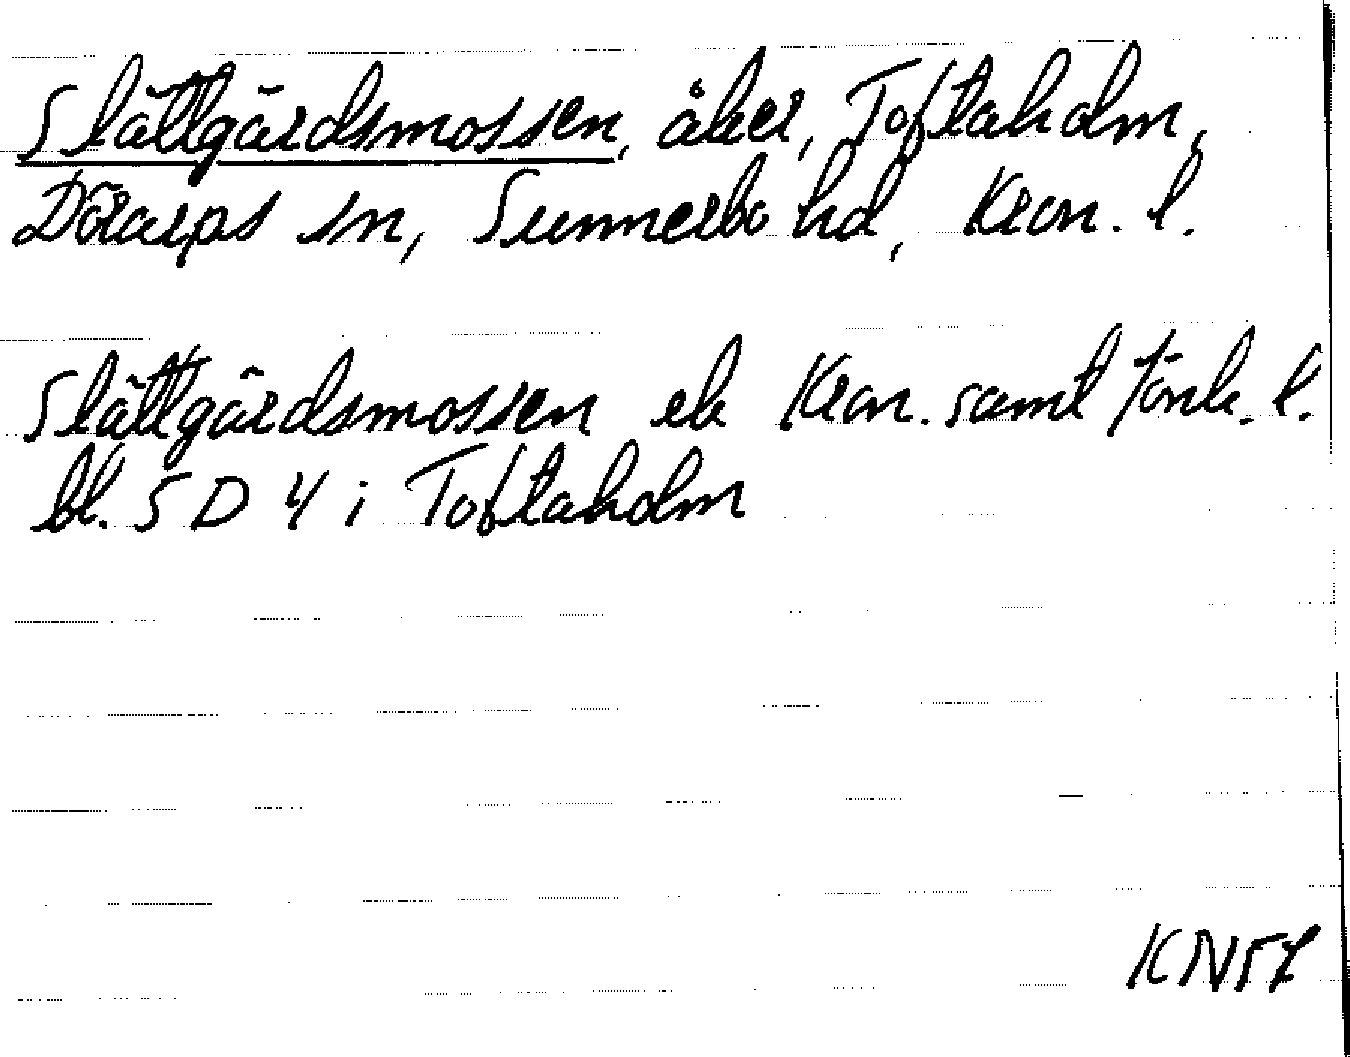 Slättgärdsmossen, åker, Toftaholm,
Dörarps sn, Sunnerbo hd, Kron. l.
Slättgärdsmossen ek Kron. samt Jönk. l.
bl. 5 D 4 i Toftaholm
KNF7